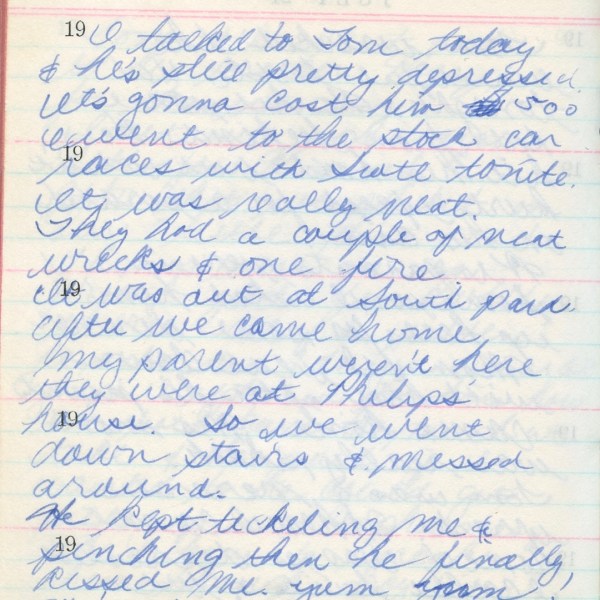 19 I talked to Tom today
& he's still pretty depressed
it's gonna cost him $500
I went to the stock car
19
races with Scott tonite.
It was really neat.
They had a couple of neat
wrecks & one fire
19
It was out at South park.
after we came home
my parent weren't here
they were at Philips'
19
house. So we went
down stairs & messed
around.
He kept tickeling me &
19
pinching then he finally,
kissed me. yum yum.